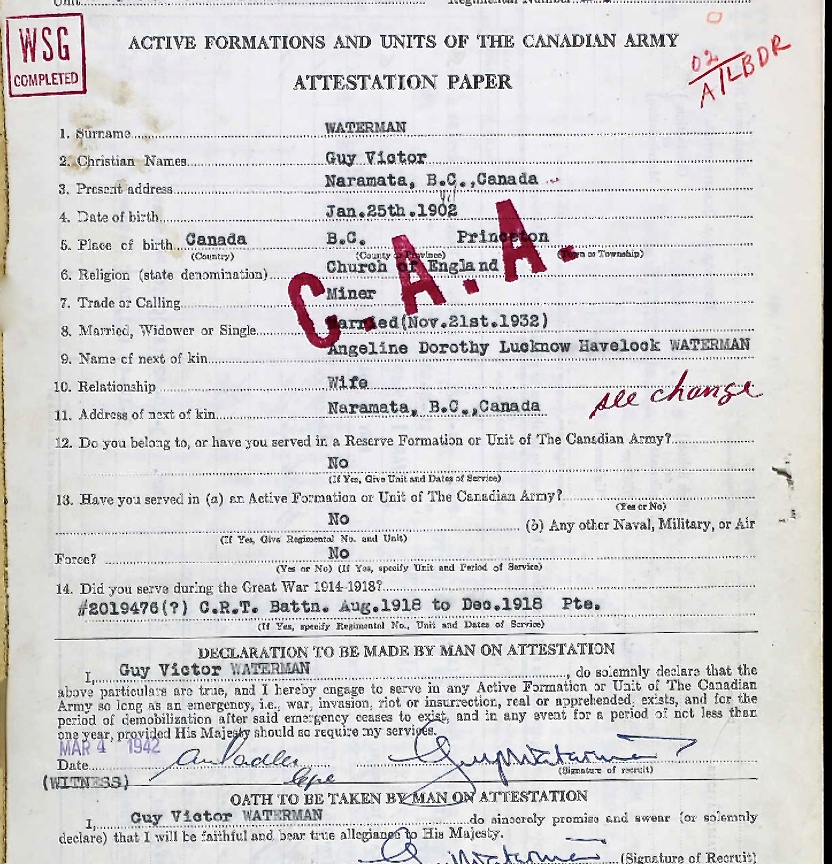 WSG
COMPLETED
ACTIVE FORMATIONS AND UNITS OF THE CANADIAN ARMY
02
A/LBDR
ATTESTATION PAPER
1. Surname WATERMAN
2. Christian Names Guy Victor
3. Present address Naramata, B.C.,Canada
4. Date of birth Jan.25th.1902
5. Place of birth Canada B.C. Princeton
(Country) (County or Province) (Town or Township)
6. Religion (state denomination) Church of England
C.A.A.
7. Trade or Calling Miner
8. Married, Widower or Single Married(Nov.21st.1932)
9. Name of next of kin Angeline Dorothy Lucknow Havelock WATERMAN
10. Relationship Wife
see change
11. Address of next of kin Naramata, B.C.,Canada
12. Do you belong to, or have you served in a Reserve Formation or Unit of The Canadian Army?
No
(If Yes, Give Unit and Dates of Service)
13. Have you served in (a) an Active Formation or Unit of The Canadian Army?
(Yes or No)
No (b) Any other Naval, Military, or Air
(If Yes, Give Regimental No. and Unit)
Force? No
(Yes or No) (If Yes, specify Unit and Period of Service)
14. Did you serve during the Great War 1914-1918?
#2019476(?) C.R.T. Battn. Aug.1918 to Dec.1918 Pte.
(If Yes, specify Regimental No., Unit and Dates of Service)
DECLARATION TO BE MADE BY MAN ON ATTESTATION
I, Guy Victor WATERMAN, do solemnly declare that the
above particulars are true, and I hereby engage to serve in any Active Formation or Unit of The Canadian
Army so long as an emergency, i.e., war, invasion, riot or insurrection, real or apprehended, exists, and for the
period of demobilization after said emergency ceases to exist, and in any event for a period of not less than
one year, provided His Majesty should so require my services.
MAR 4 1942
Date Guy Waterman
(Signature of recruit)
(WITNESS)
OATH TO BE TAKEN BY MAN ON ATTESTATION
I, Guy Victor WATERMAN do sincerely promise and swear (or solemnly
declare) that I will be faithful and bear true allegiance to His Majesty.
(Signature of Recruit)